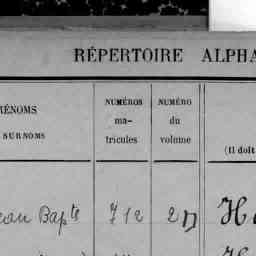 RÉPERTOIRE ALPHA
RÉNOMS
SURNOMS
NUMÉROS
ma-
tricules
NUMÉRO
du
volume
(Il doit
ean Bapte 712 2